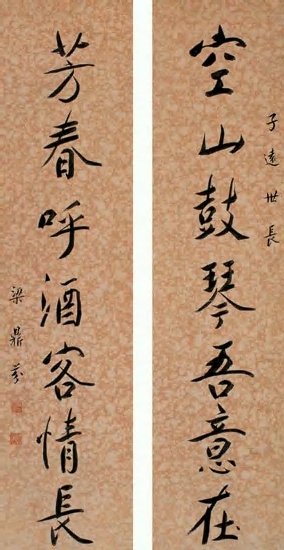 空山鼓琴吾意在
子遠世長
芳春呼酒客情長
梁鼎芬